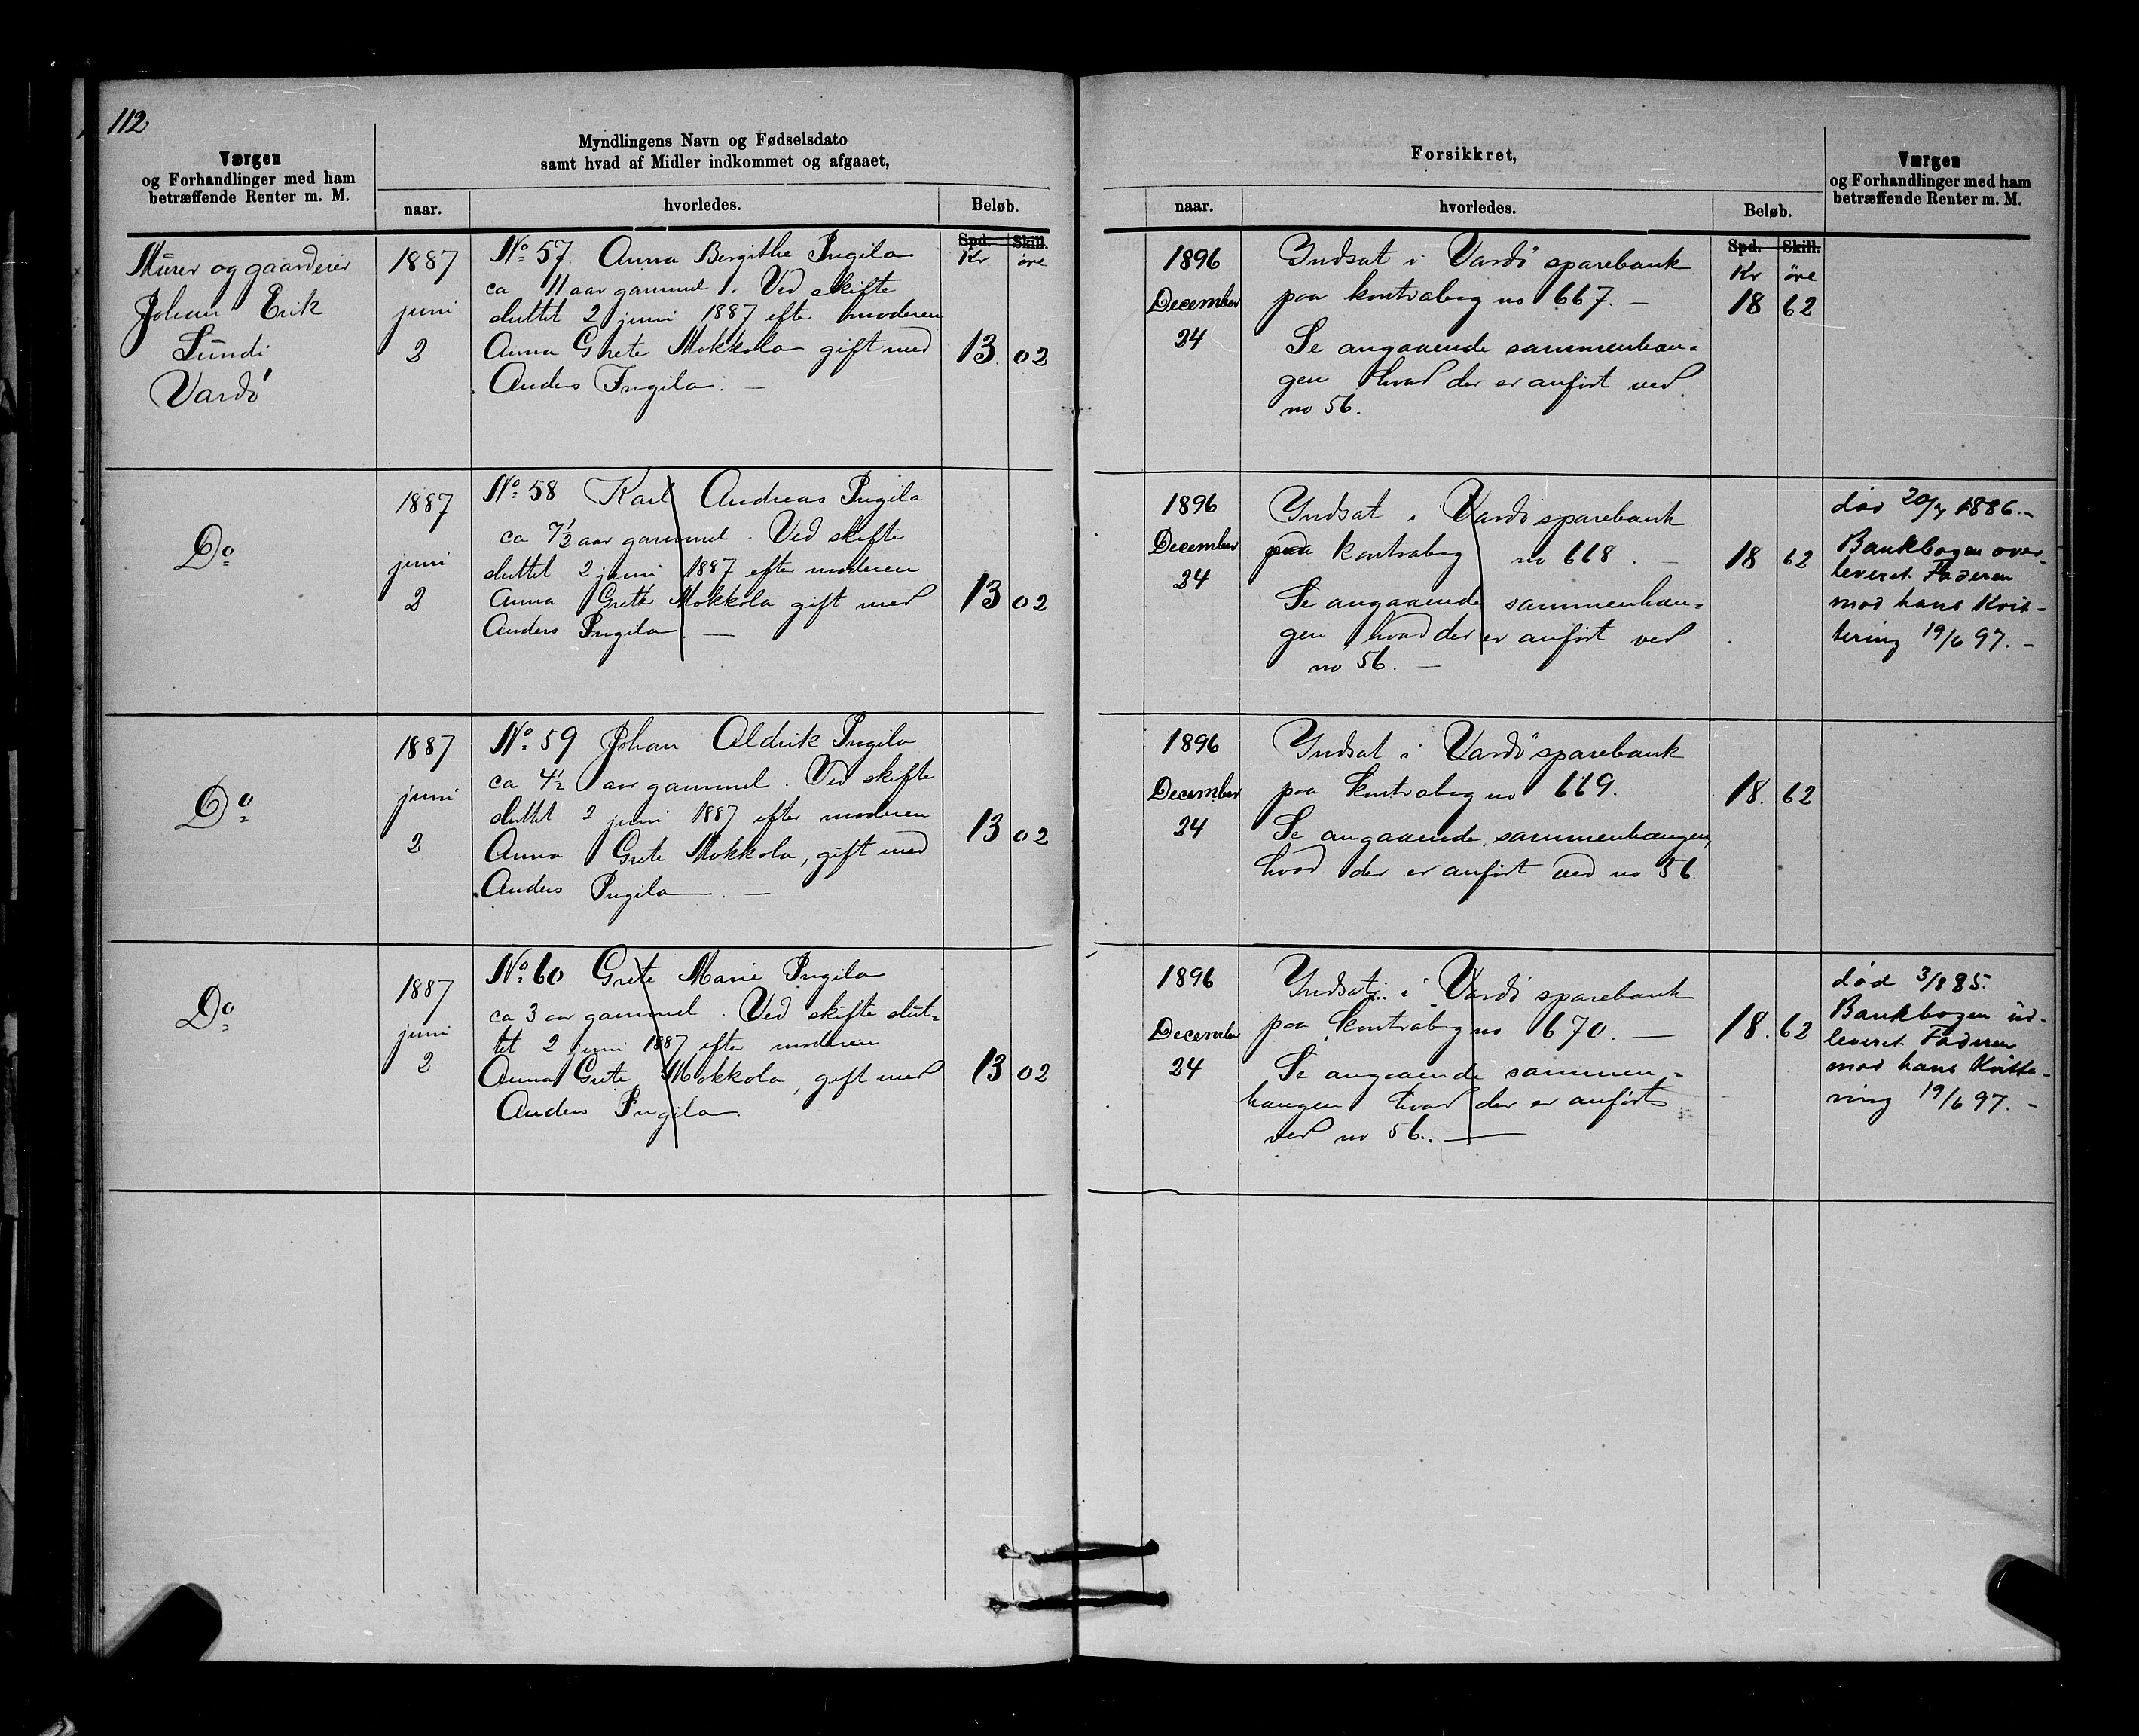 112
Værgen
og Forhandlinger med ham
betræffende Renter m. M.
Myndlingens Navn og Fødselsdato
samt hvad af Midler indkommet og afgaaet,
naar.
hvorledes.
Beløb.
Spd. Skill.
Kr øre
Murer og gaardeier
Johan Erik
Sundi
Vardö
1887
juni
2
No 57. Anna Bergithe Ingila
ca 11 aar gammel. Ved skifte
sluttet 2 juni 1887 efter moderen
Anna Grete Mokkola gift med
Anders Ingila. —
13. 02
Do
1887
juni
2
No 58 Karl Andreas Ingila
ca 7½ aar gammel. Ved skifte
sluttet 2 juni 1887 efter moderen
Anna Grete Mokkola gift med
Anders Ingila. —
13 02
Do
1887
juni
2
No 59 Johan Aldrik Ingila
ca 4½ aar gammel. Ved skifte
sluttet 2 juni 1887 efter moderen
Anna Grete Mokkola, gift med
Anders Ingila. —
13 02
Do
1887
juni
2
No 60 Grete Marie Ingila
ca 3 aar gammel. Ved skifte slut=
tet 2 juni 1887 efter moderen
Anna Grete Mokkola, gift med
Anders Ingila.
13 02
Forsikkret,
naar.
hvorledes.
Beløb.
Værgen
og Forhandlinger med ham
betræffende Renter m. M.
Spd. Skill.
Kr öre
1896
December
24
Indsat i Vardö sparebank
paa kontrabog no 667. —
Se angaaende sammenhæn=
gen hvad der er anført ved
no 56.
18 62
1896
December
24
Indsat i Vardö sparebank
paa kontrabog no 668. —
Se angaaende sammenhæn=
gen hvad der er anført ved
no 56. —
18 62
død 20/4 1886. -
Bankbogen over-
leveret Faderen
mod hans Kvit-
tering 19/6 97. -
1896
December
24
Indsat i Vardö sparebank
paa kontrabog no 669.
Se angaaende sammenhængen,
hvad der er anført ved no 56.
18. 62
1896
December
24
Indsat i Vardö sparebank
paa kontrabog no 670. —
Se angaaende sammen=
hængen hvad der er anført
ved no 56. —
18. 62
død 3/8 85.
Bankbogen ud-
leveret Faderen
mod hans Kvitte-
ring 19/6 97. -